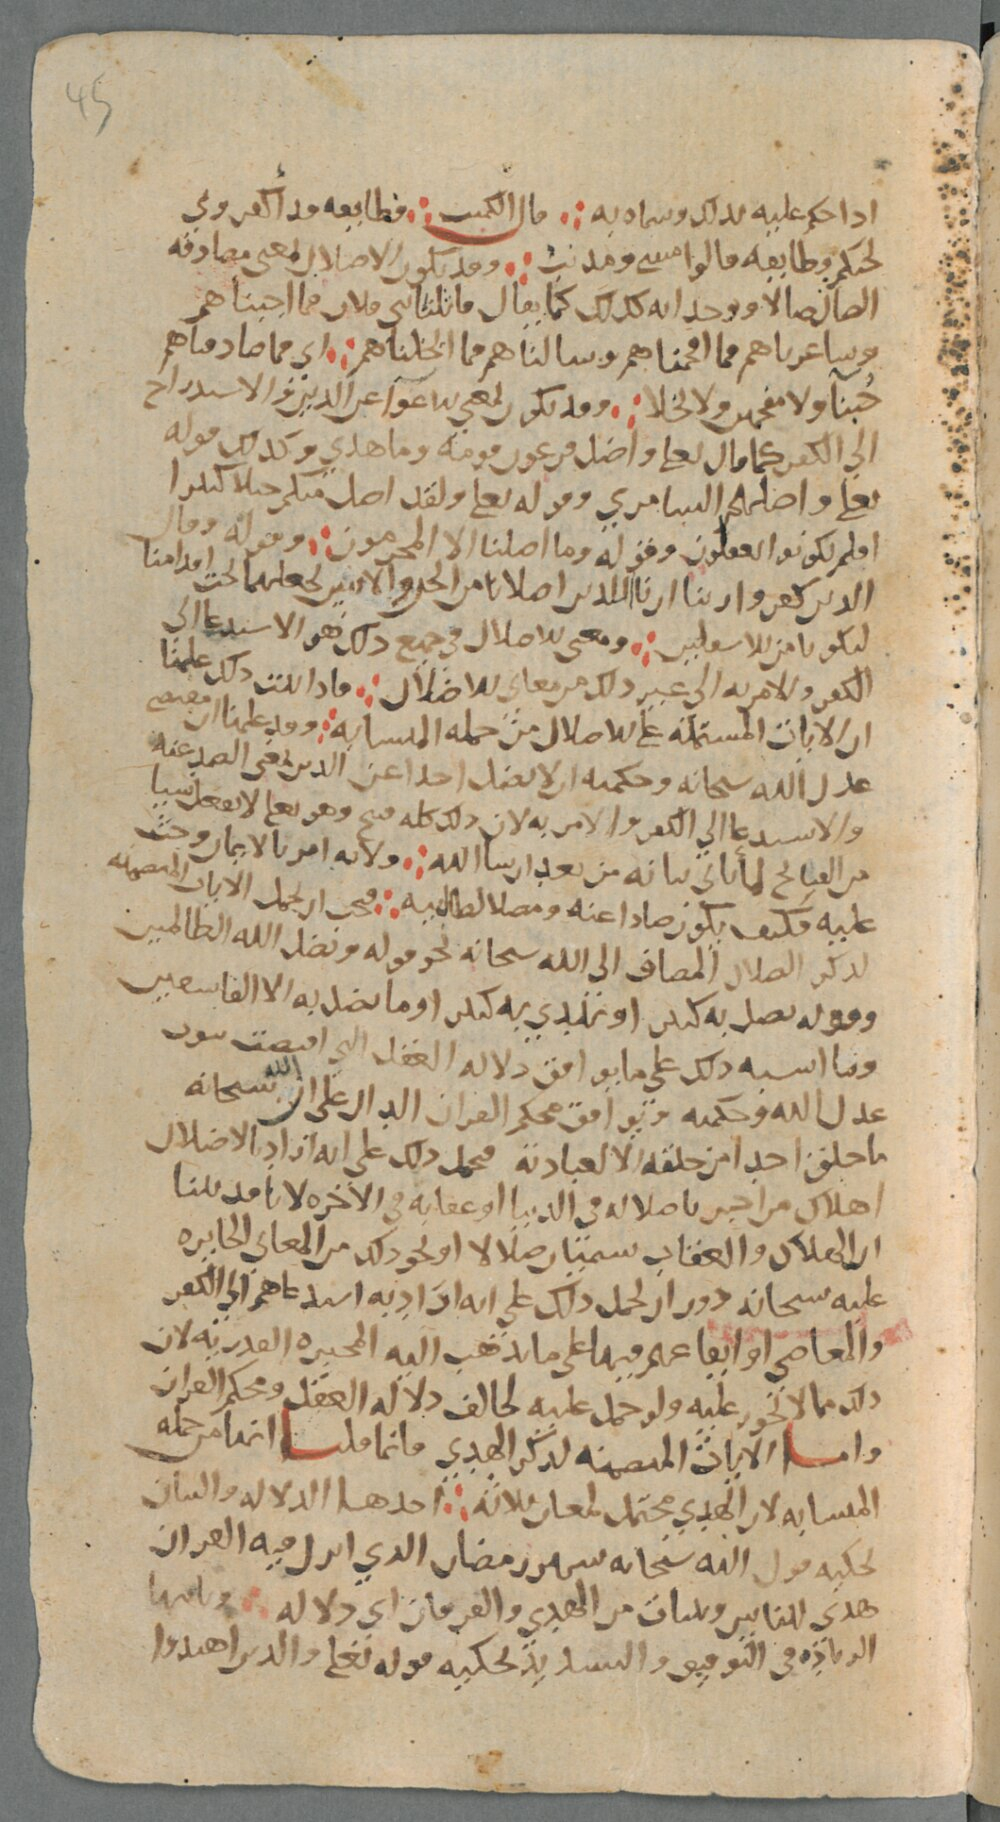 45
اذا حكم عليه بذلك وسماه به ∴ قال الكميت ∴ فطايفه قد أكفروني
لحبكم وطايفه قالوا مسي ومذنب ∴ وقد يكون الاضلال بمعنى مصادفه
الضال ضالا ووجدانه كذلك كما يقال قاتلنا بني فلان فما اجبناهم
وشاعرناهم فما افحمناهم وسالناهم فما ابخلناهم ∴ اي فما صادفناهم
جُبنآ ولا مفحمين ولا بخلا ∴ وقد يكون بمعنى الاغوآ عن الدين والاستدراج
الى الكفر كما قال تعلى واضل فرعون قومه وما هدي وكذلك قوله
تعلى واضلهم السامري وقوله تعلى ولقد اضل منكم جبلا كثيرا
افلم تكونوا تعقلون وقوله وما اضلنا الا المجرمون ∴ وقوله وقال
الذين كفروا ربنا ارنا اللذين اضلانا من الجن والانس نجعلهما تحت اقدامنا
ليكونا من الاسفلين ∴ ومعنى الاضلال في جميع ذلك هو الاستدعا الى
الكفر والامر به الى غير ذلك من معاني الاضلال ∴ فاذا ثبت ذلك علمنا
ان الايات المشتمله على الاضلال من جمله المتشابه ∴ وقد علمنا ان مقتضى
عدل الله سبحانه وحكمته ان لا يضل احدا عن الدين بمعنى الصد عنه
والاستدعا الي الكفر والامر به لان ذلك كله قبيح وهو تعلى لا يفعل شيا
من القبائح لما ياتي بيانه من بعد ان شا الله ∴ ولانه امر بالايمان وحث
عليه فكيف يكون صادا عنه ومضلا لطالبيه ∴ فيجب ان تحمل الايات المتضمنه
لذكر الضلال المضاف الى الله سبحانه نحو قوله ويضل الله الظالمين
وقوله يضل به كثيرا ويهدي به كثيرا وما يضل به الا الفاسقين
وما اشبه ذلك على ما يوافق دلاله العقل التي اقتضت ثبوت
عدل الله وحكمته ويوافق محكم القران الدال على ان الله سبحانه
ما خلق احدا من خلقه الا لعبادته فيحمل ذلك على انه اراد بالاضلال
اهلاك من اخبر باضلاله في الدنيا او عقابه في الاخره لانا قد بينا
ان الهلاك والعقاب يسميان ضلالا او نحو ذلك من المعاني الجايزه
عليه سبحانه دون ان يحمل ذلك على انه اراد به استدعاهم الي الكفر
والمعاصي او ايقاعهم فيها على ما يذهب اليه المجبره القدريه لان
ذلك مما لا يجوز عليه ولو حمل عليه لخالف دلاله العقل ومحكم القران
واما الايات المتضمنه لذكر الهدي فانما قلنا انها من جمله
المتشابه لان الهدي محتمل لمعان ثلاثه ∴ احدها الدلاله والبيان
يحكيه قول الله سبحانه شهر رمضان الذي انزل فيه القران
هدي للناس وبينات من الهدي والفرقان اي دلاله ∴ وثانيها
الزياده في التوفيق والتسديد يحكيه قوله تعلى والذين اهتدوا